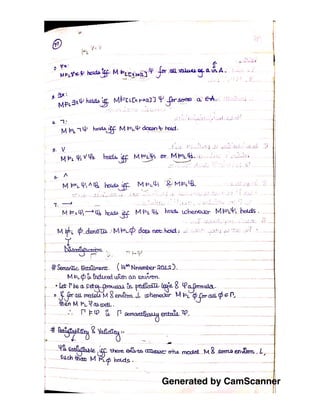 2. ∀x:
M ⊨ₗ ∀xψ holds iff M ⊨ₗ[x↦a] ψ for all values of a in A.
3. ∃x:
M ⊨ₗ ∃xψ holds iff M ⊨ₗ[x↦a] ψ for some a ∈ A.
4. ¬:
M ⊨ₗ ¬ψ holds iff M ⊨ₗ ψ doesn't hold.
5. ∨
M ⊨ₗ ψ₁ ∨ ψ₂ holds iff M ⊨ₗ ψ₁ or M ⊨ₗ ψ₂.
6. ∧
M ⊨ₗ ψ₁ ∧ ψ₂ holds iff M ⊨ₗ ψ₁ & M ⊨ₗ ψ₂.
7. →
M ⊨ₗ ψ₁ → ψ₂ holds iff M ⊨ₗ ψ₂ holds whenever M ⊨ₗ ψ₁ holds.
M ⊭ₗ ϕ denotes M ⊨ₗ ϕ does not hold.
# Semantic Entailment. (14th November 2022).
M ⊨ₗ ϕ is defined with an environ.
• Let Γ be a set of formulas in predicate logic & ψ a formula.
• If for all models M & environs L whenever M ⊨ₗ ϕ for all ϕ ∈ Γ,
then M ⊨ₗ ψ as well.
∴ Γ ⊨ ψ Γ semantically entails ψ.
# Satisfiability & Validity:-
ψ is satisfiable iff there exists atleast one model M & some environ. L,
such that M ⊨ₗ ϕ holds.
Generated by CamScanner